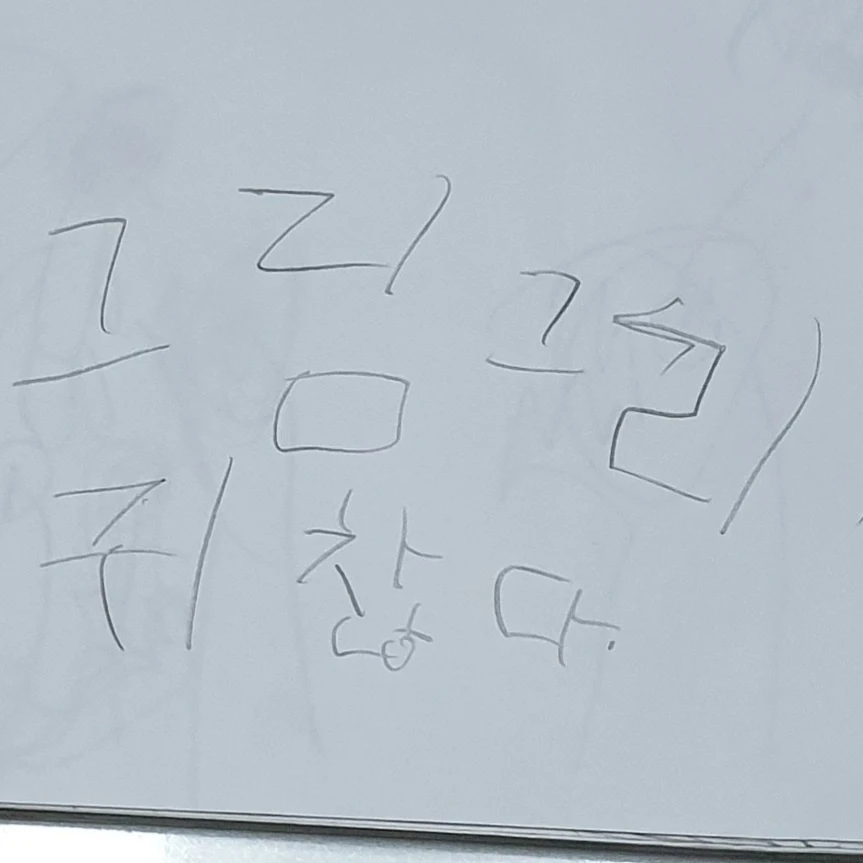 그림 그리
귀찮다.